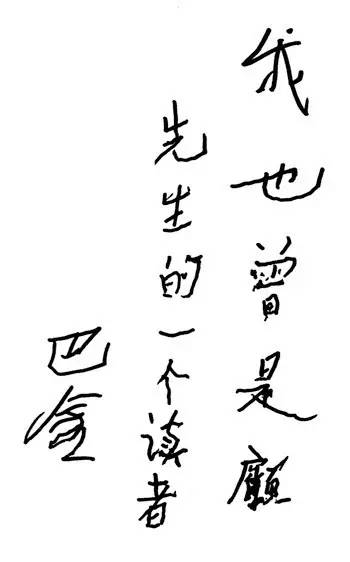 我也曾是顧
先生的一个读者
巴金